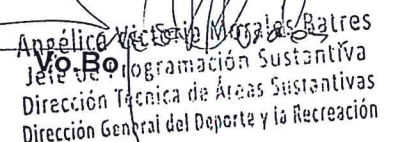 Angélica Victoria Morales Batres
Vo.Bo
Jefe de Programación Sustantiva
Dirección Técnica de Áreas Sustantivas
Dirección General del Deporte y la Recreación